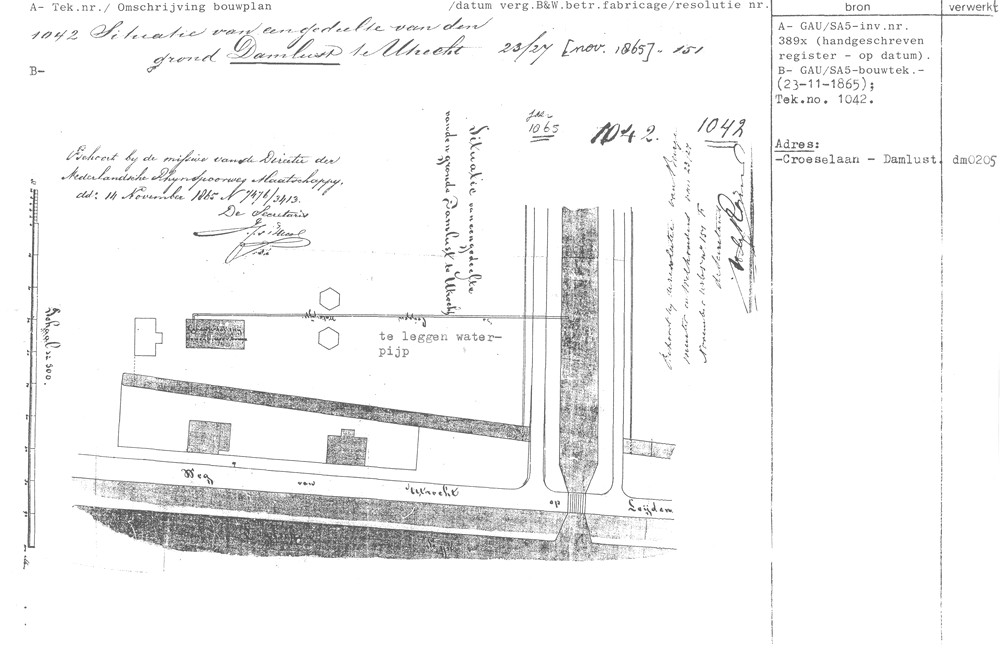 A- Tek.nr./ Omschrijving bouwplan
/datum verg.B&W.betr.fabricage/resolutie nr.
bron
verwerkt
1042 Situatie van een gedeelte van den
grond Damlust te Utrecht 23/27 [nov. 1865]- 151
B-
A- GAU/SA5-inv.nr.
389x (handgeschreven
register - op datum).
B- GAU/SA5-bouwtek.-
(23-11-1865);
Tek.no. 1042.
Adres:
-Croeselaan - Damlust. dm0205
1865
1042.
1042
Behoort bij de missive van de Directie der
Nederlandsche Rhijnspoorweg Maatschappy.
dd: 14 November 1865 N 7476/3413.
De Secretaris
Situatie van een gedeelte
van den gronde Damlust te Utrecht
Behoort bij resolutie van Burge
meester en Wethouders van
November 1865 No 151
de Secretaris
te leggen water-
pijp
Schaal
500.
Weg
van
Utrecht
op
Leijden